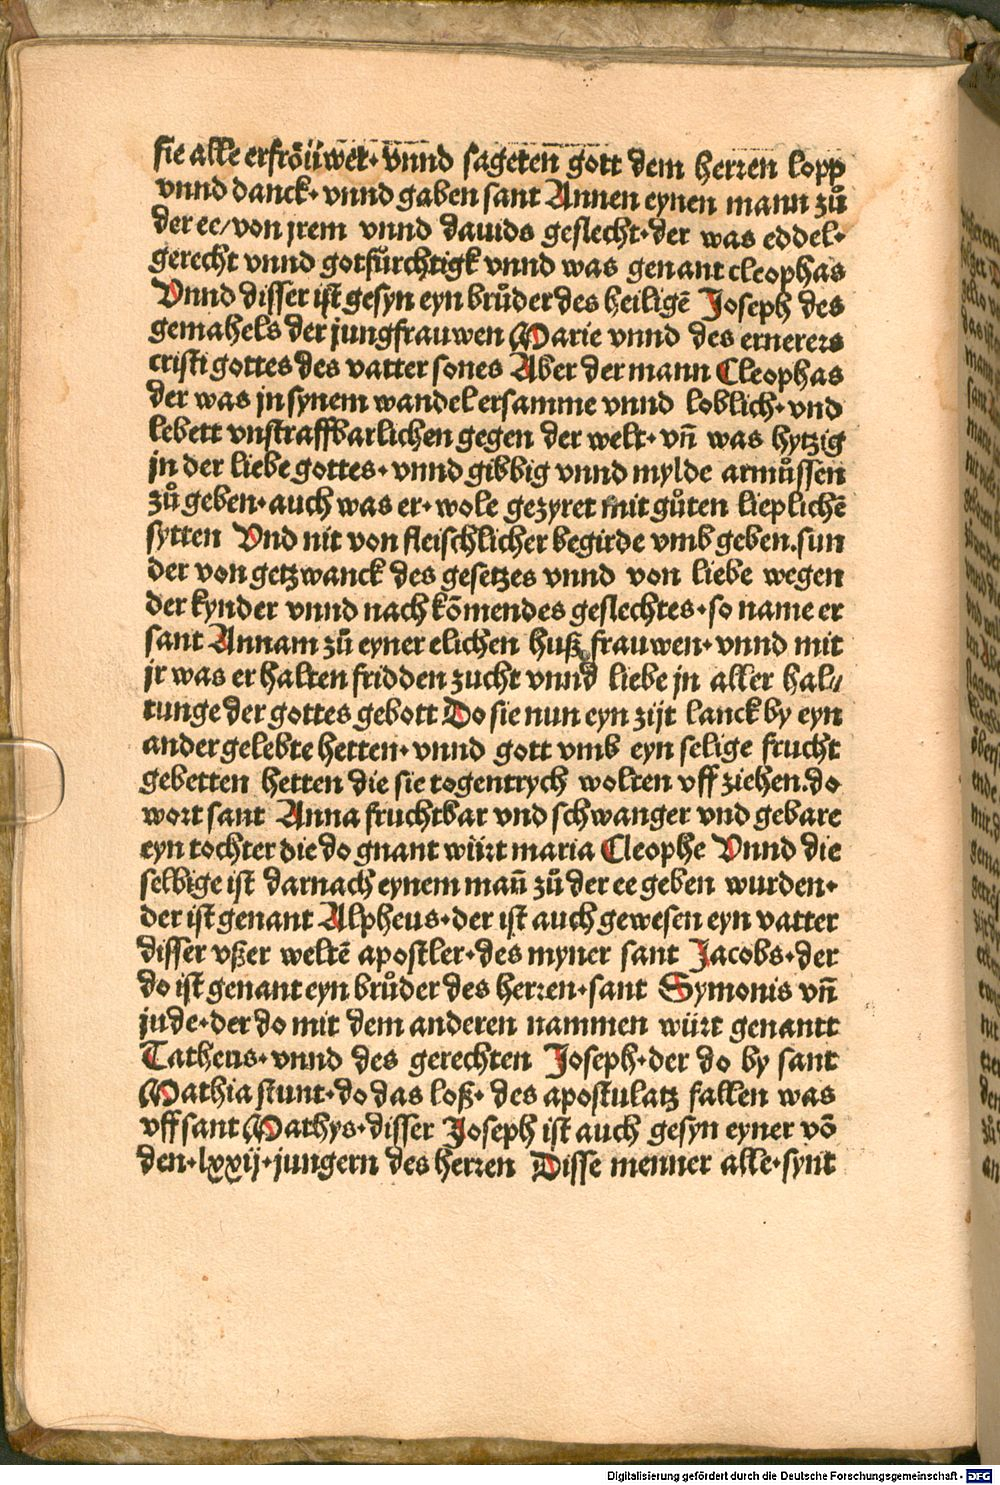 sie alle erfröüwet· vnnd sageten gott dem herren lopp
vnnd danck· vnnd gaben sant Annen eynen mann zů
der ee/von jrem vnnd dauids geslecht·der was eddel·
gerecht vnnd gotfürchtigk vnnd was genant cleophas
Vnnd disser ist gesyn eyn brůder des heiligē Joseph des
gemahels der jungfrauwen Marie vnnd des ernerers
cristi gottes des vatter sones Aber der mann Cleophas
der was jn synem wandel ersamme vnnd loblich· vnd
lebett vnstraffbarlichen gegen der welt· vn̄ was hytzig
jn der liebe gottes· vnnd gibbig vnnd mylde armůssen
zů geben· auch was er· wole gezyret mit gůten lieplichē
sytten Vnd nit von fleischlicher begirde vmb geben.sun
der von getzwanck des gesetzes vnnd von liebe wegen
der kynder vnnd nach kōmendes geslechtes· so name er
sant Annam zů eyner elichen huß frauwen· vnnd mit
jr was er halten fridden zucht vnnd liebe jn aller hal//
tunge der gottes gebott Do sie nun eyn zijt lanck by eyn
ander gelebte hetten· vnnd gott vmb eyn selige frucht
gebetten hetten die sie togentrych wolten vff ziehen.do
wort sant Anna fruchtbar vnd schwanger vnd gebare
eyn tochter die do gnant würt maria Cleophe Vnnd die
selbige ist darnach eynem man̄ zů der ee geben wurden·
der ist genant Alpheus· der ist auch gewesen eyn vatter
disser vßer weltē apostler· des myner sant Jacobs· der
do ist genant eyn brůder des herren· sant Symonis vn̄
jude· der do mit dem anderen nammen würt genantt
Tatheus· vnnd des gerechten Joseph· der do by sant
Mathia stunt· do das loß· des apostulatz fallen was
vff sant Mathys· disser Joseph ist auch gesyn eyner vō
den· lxxij· jungern des herren Disse menner alle· synt
Digitalisierung gefördert durch die Deutsche Forschungsgemeinschaft - DFG